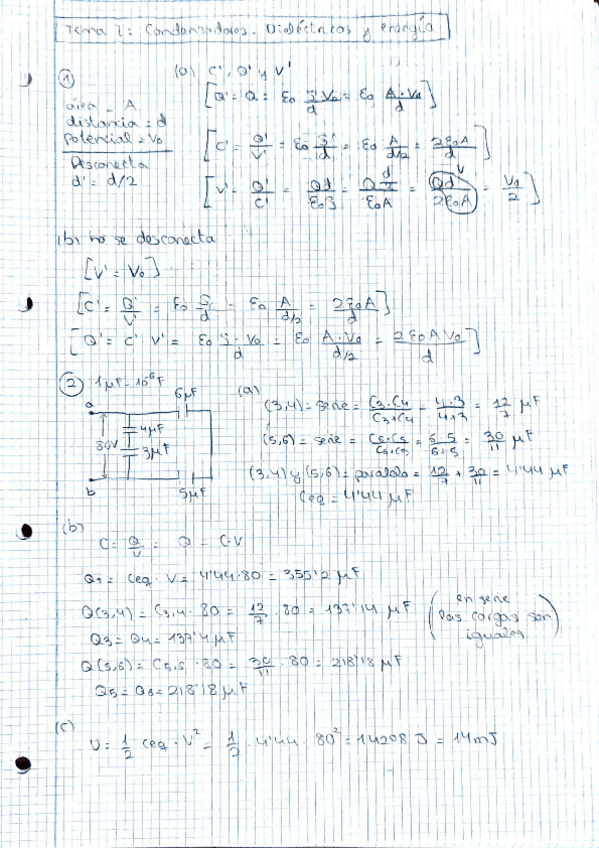 Tema 7: Condensadores. Dieléctricos y energía
① (a) C', Q' y V'
[Q' = Q = ε₀ S·V₀/d = ε₀ A·V₀/d]
área = A
distancia = d
potencial = V₀
Desconecta
d' = d/2
[C' = Q'/V' = ε₀ S/d = ε₀ A/d/2 = 2ε₀A/d]
[V' = Q'/C' = Qd/ε₀S = Q d/2/ε₀A = Qd/2ε₀A = V₀/2]
V
(b) no se desconecta
[V' = V₀]
[C' = Q'/V' = ε₀ S/d = ε₀ A/d/2 = 2ε₀A/d]
[Q' = C' V' = ε₀ S·V₀/d = ε₀ A·V₀/d/2 = 2ε₀AV₀/d]
② 1μF = 10⁻⁶F
a
6μF
4μF
80V
3μF
b
5μF
(a)
(3,4) = serie = C3·C4/C3+C4 = 4·3/4+3 = 12/7 μF
(5,6) = serie = = 30/11 μF
(3,4) y (5,6) = paralelo = 12/7 + 30/11 = 4'44 μF
Ceq = 4'44 μF
(b)
C = Q/V = Q = C·V
QT = Ceq · V = 4'44·80 = 355'2 μF
Q(3,4) = C3,4 · 80 = 12/7 · 80 = 137'14 μF
(en serie
las cargas son
iguales)
Q3 = Q4 = 137'4 μF
Q(5,6) = C5,6 · 80 = 30/11 · 80 = 218'18 μF
Q5 = Q6 = 218'18 μF
(c)
U = 1/2 Ceq · V² = 1/2 · 4'44 · 80² = 14208 J = 14mJ